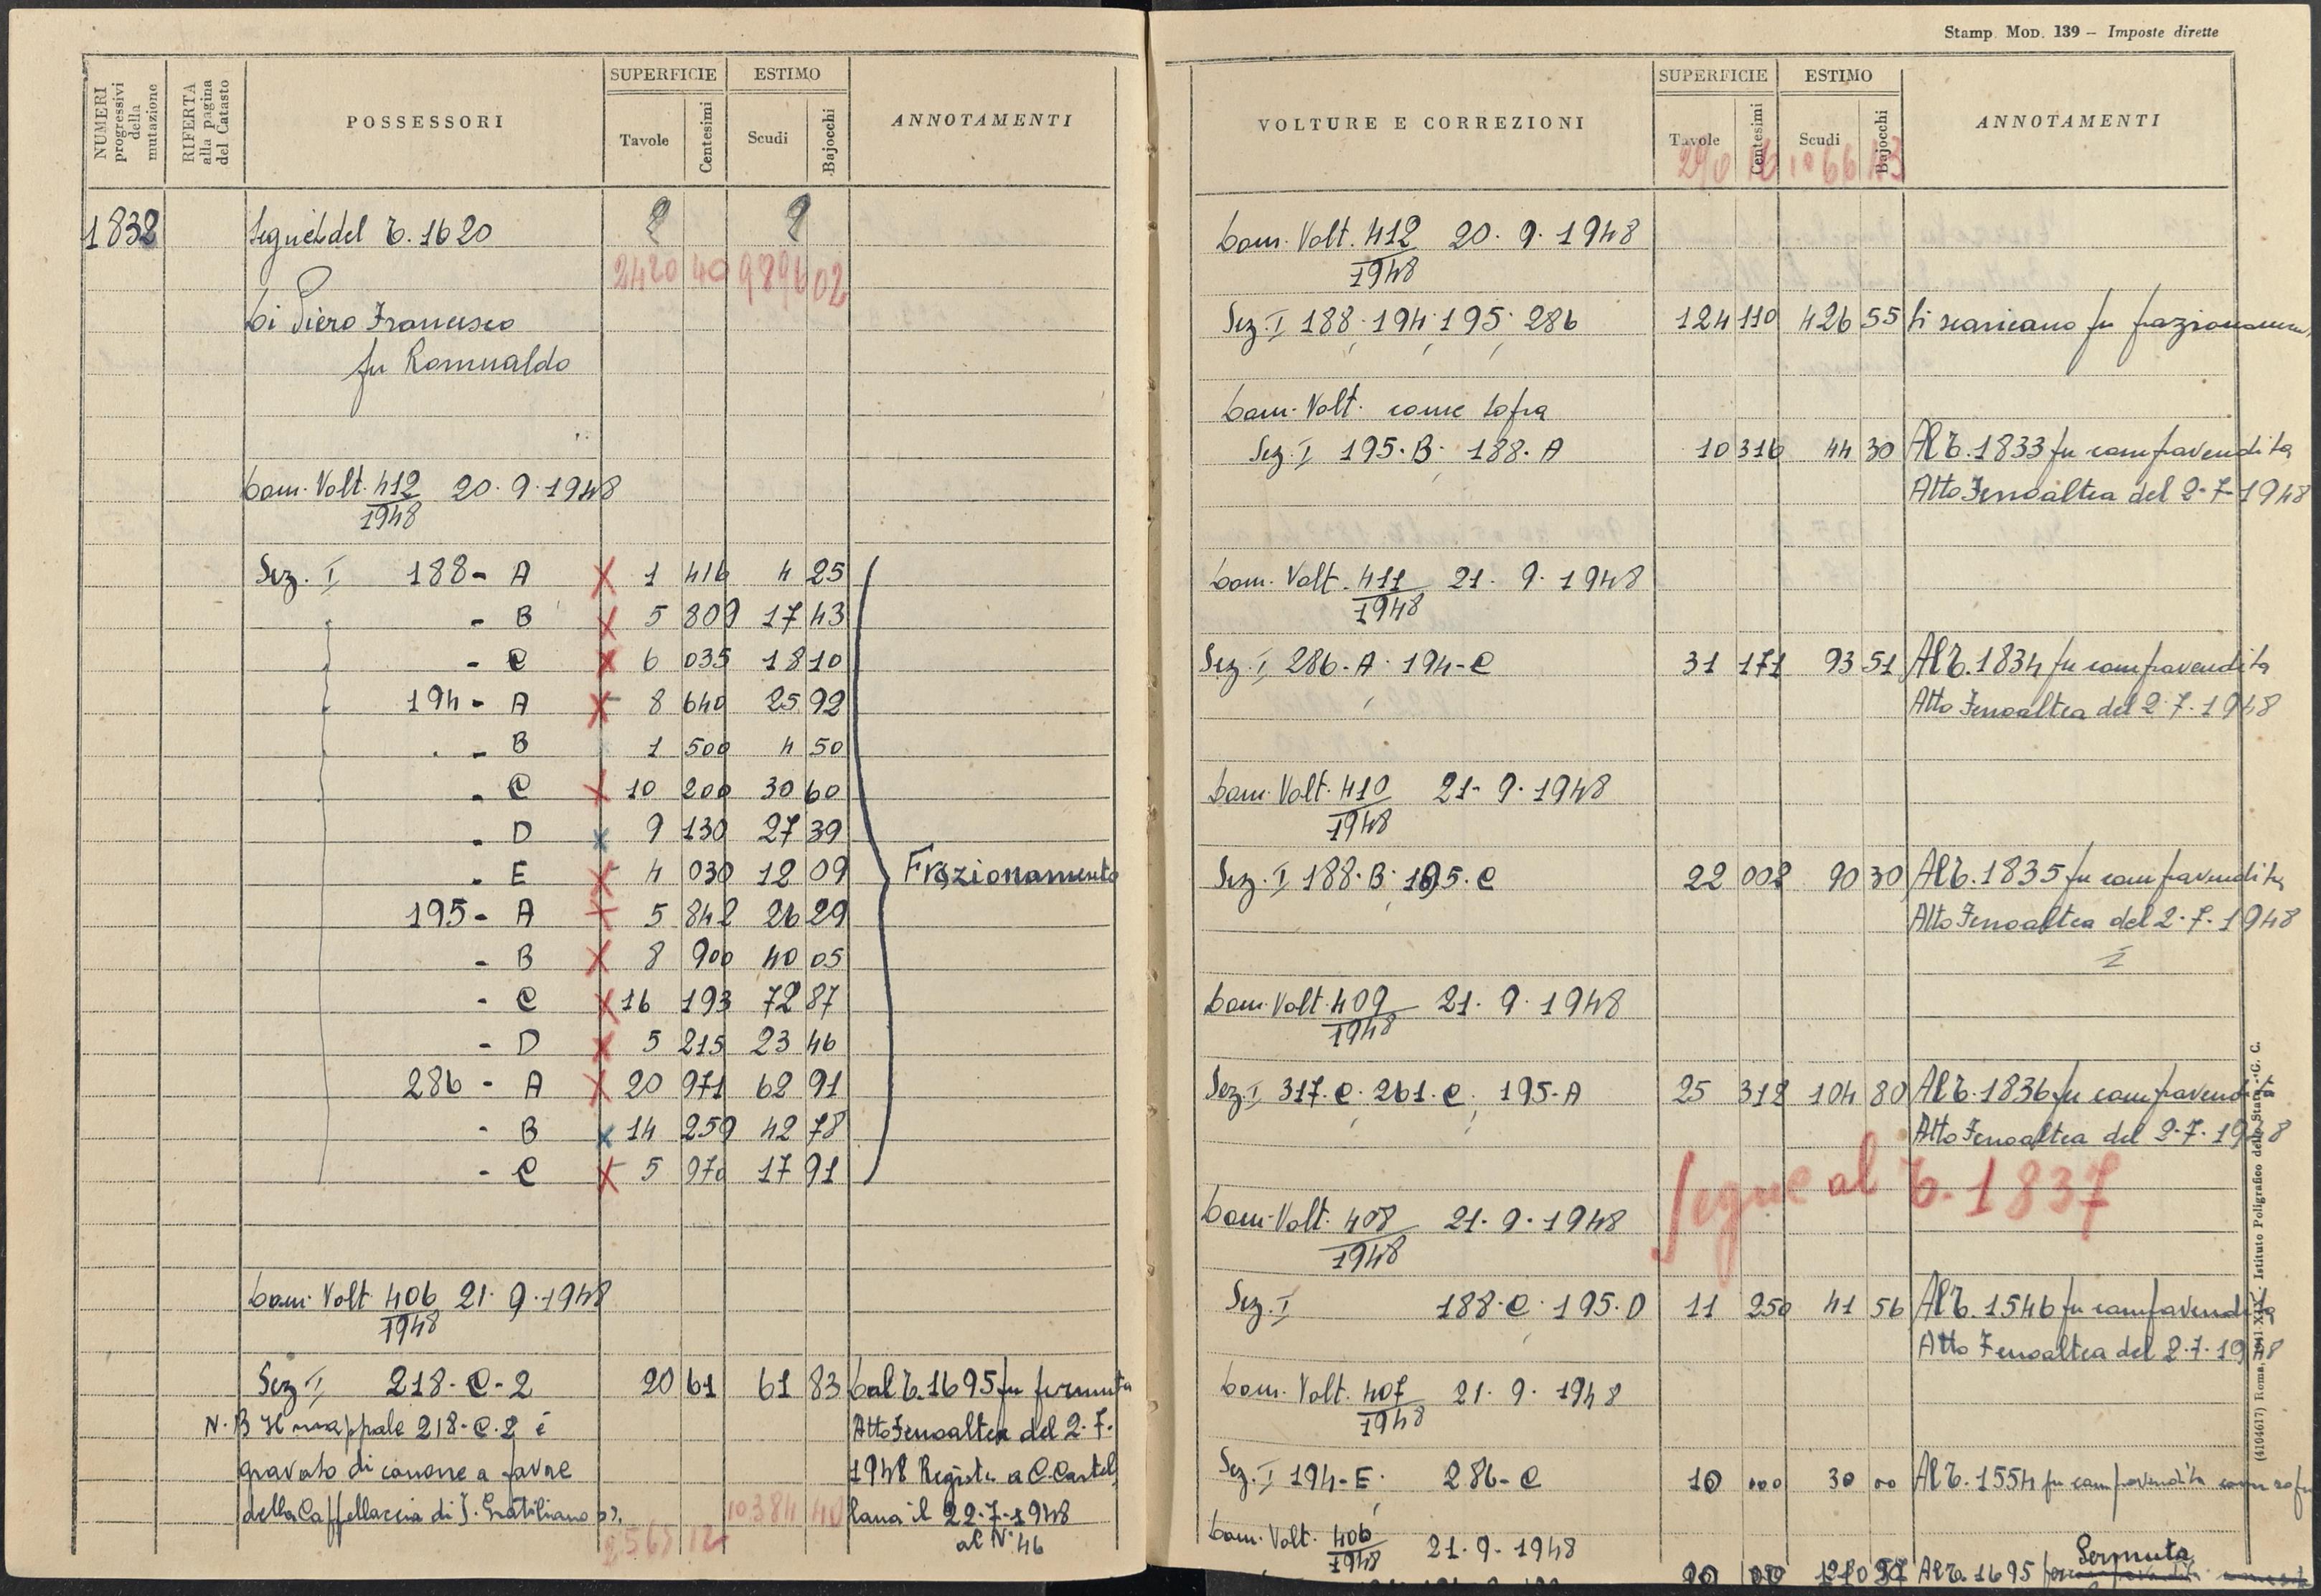 NUMERI progressivi della mutazione
RIFERTA alla pagina del Catasto
POSSESSORI
SUPERFICIE
Tavole
Centesimi
ESTIMO
Scudi
Bajocchi
ANNOTAMENTI
1832
Segue del T. 1620
2420 40 9896 02
Di Piero Francesco
fu Romualdo
Dom. Volt. 412/1948 20.9.1948
Sez. I 188 - A X 1 416 4 25
- B X 5 809 17 43
- C X 6 035 18 10
194 - A X 8 640 25 92
- B 1 500 4 50
- C X 10 200 30 60
- D x 9 130 27 39
- E X 4 030 12 09 Frazionamento
195 - A X 5 842 26 29
- B X 8 900 40 05
- C X 16 193 72 87
- D X 5 215 23 46
286 - A X 20 971 62 91
- B x 14 259 42 78
- C X 5 970 17 91
Dom. Volt 406/1948 21.9.1948
Sez I 218-C-2 20 61 61 83 Dal T. 1695 fu permuta
N.B Il mappale 218-C-2 è Atto Fenoaltea del 2.7.
gravato di canone a favore 1948 Registr. a C. Castel
della Cappellaccia di S. Gratiliano 10384 40 lana il 22-7-1948
2565 12 al N. 46
Stamp. MOD. 139 – Imposte dirette
VOLTURE E CORREZIONI
SUPERFICIE
Tavole
Centesimi
ESTIMO
Scudi
Bajocchi
ANNOTAMENTI
Dom. Volt. 412/1948 20.9.1948
Sez. I 188, 194, 195, 286 124 110 426 55 Si scaricano fu frazionam
Dom. Volt. come sopra
Sez. I 195-B, 188-A 10 316 44 30 Al T. 1833 fu compravendita
Atto Fenoaltea del 2-7-1948
Dom. Volt. 411/1948 21.9.1948
Sez. I 286-A, 194-C 31 171 93 51 Al T. 1834 fu compravendita
Atto Fenoaltea del 2.7.1948
Dom. Volt. 410/1948 21-9.1948
Sez. I 188-B, 195-C 22 002 90 30 Al T. 1835 fu compravendita
Atto Fenoaltea del 2.7.1948
Dom. Volt. 409/1948 21.9.1948
Sez. I 317-C, 261-C, 195-A 25 312 104 80 Al T. 1836 fu compravendita
Atto Fenoaltea del 2.7.1948
Segue al T. 1837
Dom. Volt. 408/1948 21.9.1948
Sez. I 188-C, 195-D 11 250 41 56 Al T. 1546 fu compravendita
Atto Fenoaltea del 2.7.1948
Dom. Volt. 407/1948 21.9.1948
Sez. I 194-E, 286-C 10 000 30 00 Al T. 1554 fu compravendita come sopra
Dom. Volt. 406/1948 21.9.1948
Permuta
Al T. 1695
(4104617) Roma, Istituto Poligrafico dello Stato G. C.